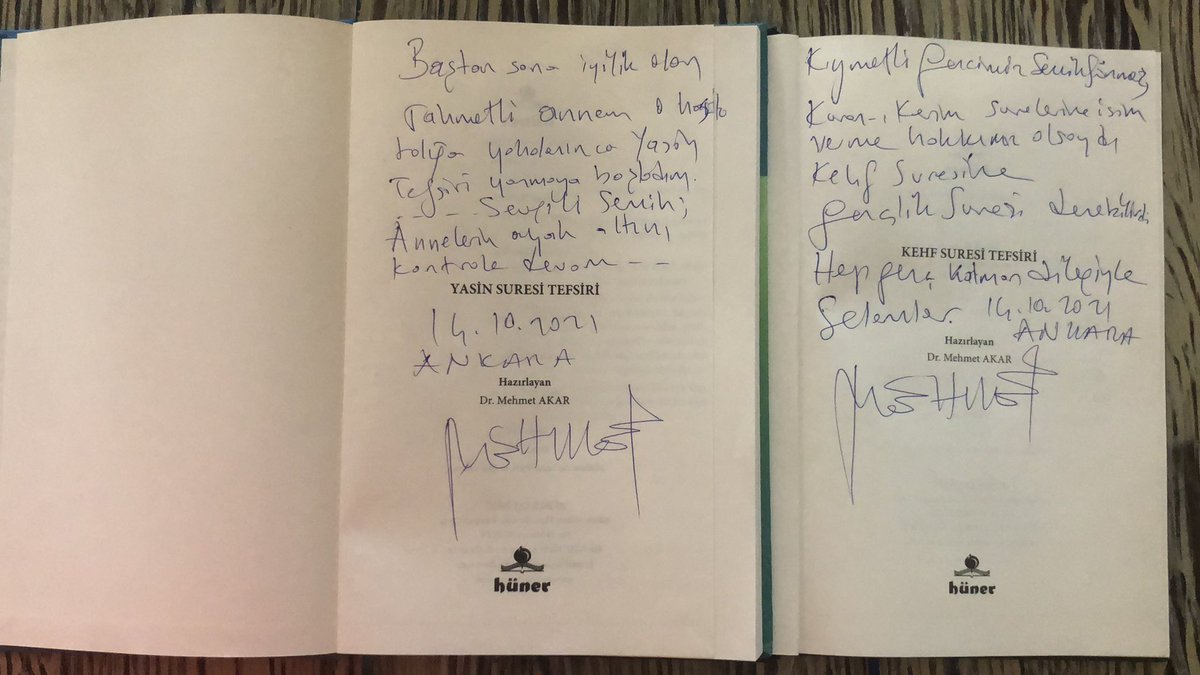 Baştan sona iyilik olan
rahmetli annem o
yakalanınca Yasin
Tefsiri yazmaya başladım.
- - - - Sevgili Semih;
Annelerin ayak altını
kontrole devam - -
YASİN SURESİ TEFSİRİ
14.10.2021
ANKARA
Hazırlayan
Dr. Mehmet AKAR
MEHMET
hüner
Kıymetli gencimiz Semih
Kuran-ı Kerim surelerine isim
verme hakkımız olsaydı
Kehf Suresine
gençlik Suresi denebilirdi
KEHF SURESİ TEFSİRİ
Hep genç kalman dileğiyle
Selamlar. 14.10.2021
ANKARA
Hazırlayan
Dr. Mehmet AKAR
MEHMET
hüner